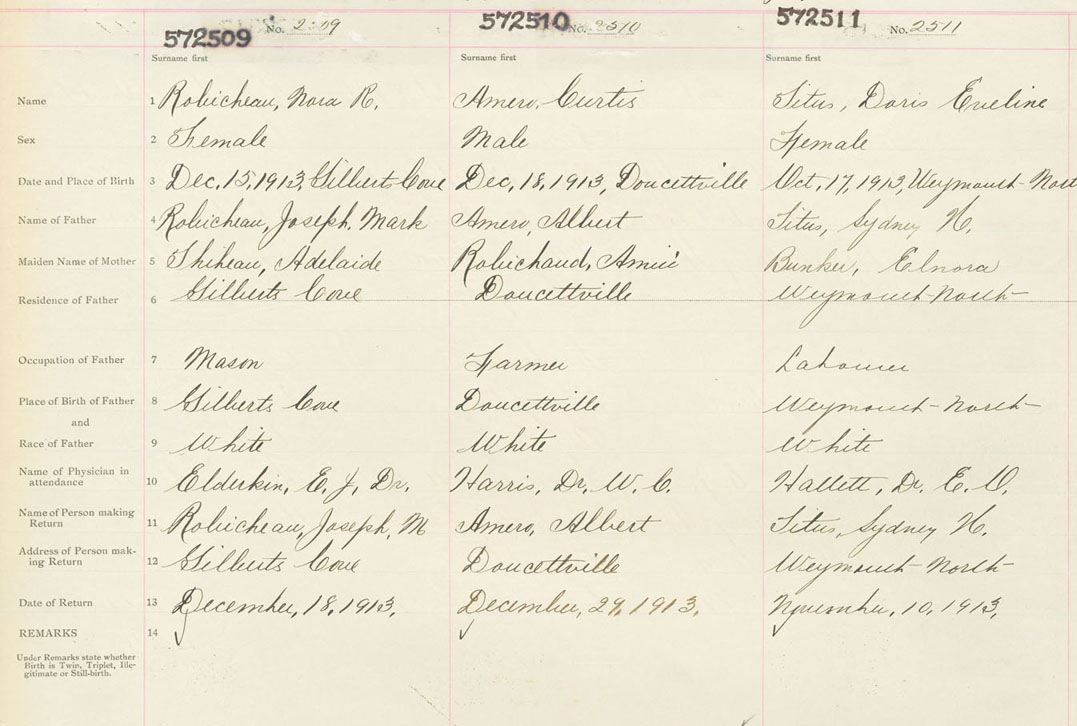 572509 No. 2509 572510 No. 2510 572511 No. 2511
Surname first Surname first Surname first
Name 1 Robicheau, Nora R. Amero, Curtis Titus, Doris Eveline
Sex 2 Female Male Female
Date and Place of Birth 3 Dec, 15, 1913, Gilberts Cove Dec, 18, 1913, Doucettville Oct, 17, 1913, Weymouth-Nort
Name of Father 4 Robicheau, Joseph, Mark Amero, Albert Titus, Sydney H.
Maiden Name of Mother 5 Thibeau, Adelaide Robichaud, Bunker, Elnora
Residence of Father 6 Gilberts Cove Doucettville Weymouth-North
Occupation of Father 7 Mason Farmer Labourer
Place of Birth of Father 8 Gilberts Cove Doucettville Weymouth-North
and
Race of Father 9 White White White
Name of Physician in
attendance 10 Elderkin, E. J, Dr. Harris, Dr, W. C. Hallett, Dr. E. O.
Name of Person making
Return 11 Robicheau, Joseph, M Amero, Albert Titus, Sydney H.
Address of Person mak-
ing Return 12 Gilberts Cove Doucettville Weymouth-North
Date of Return 13 December, 18, 1913, December, 29, 1913. November, 10, 1913,
REMARKS 14
Under Remarks state whether
Birth is Twin, Triplet, Ille-
gitimate or Still-birth.